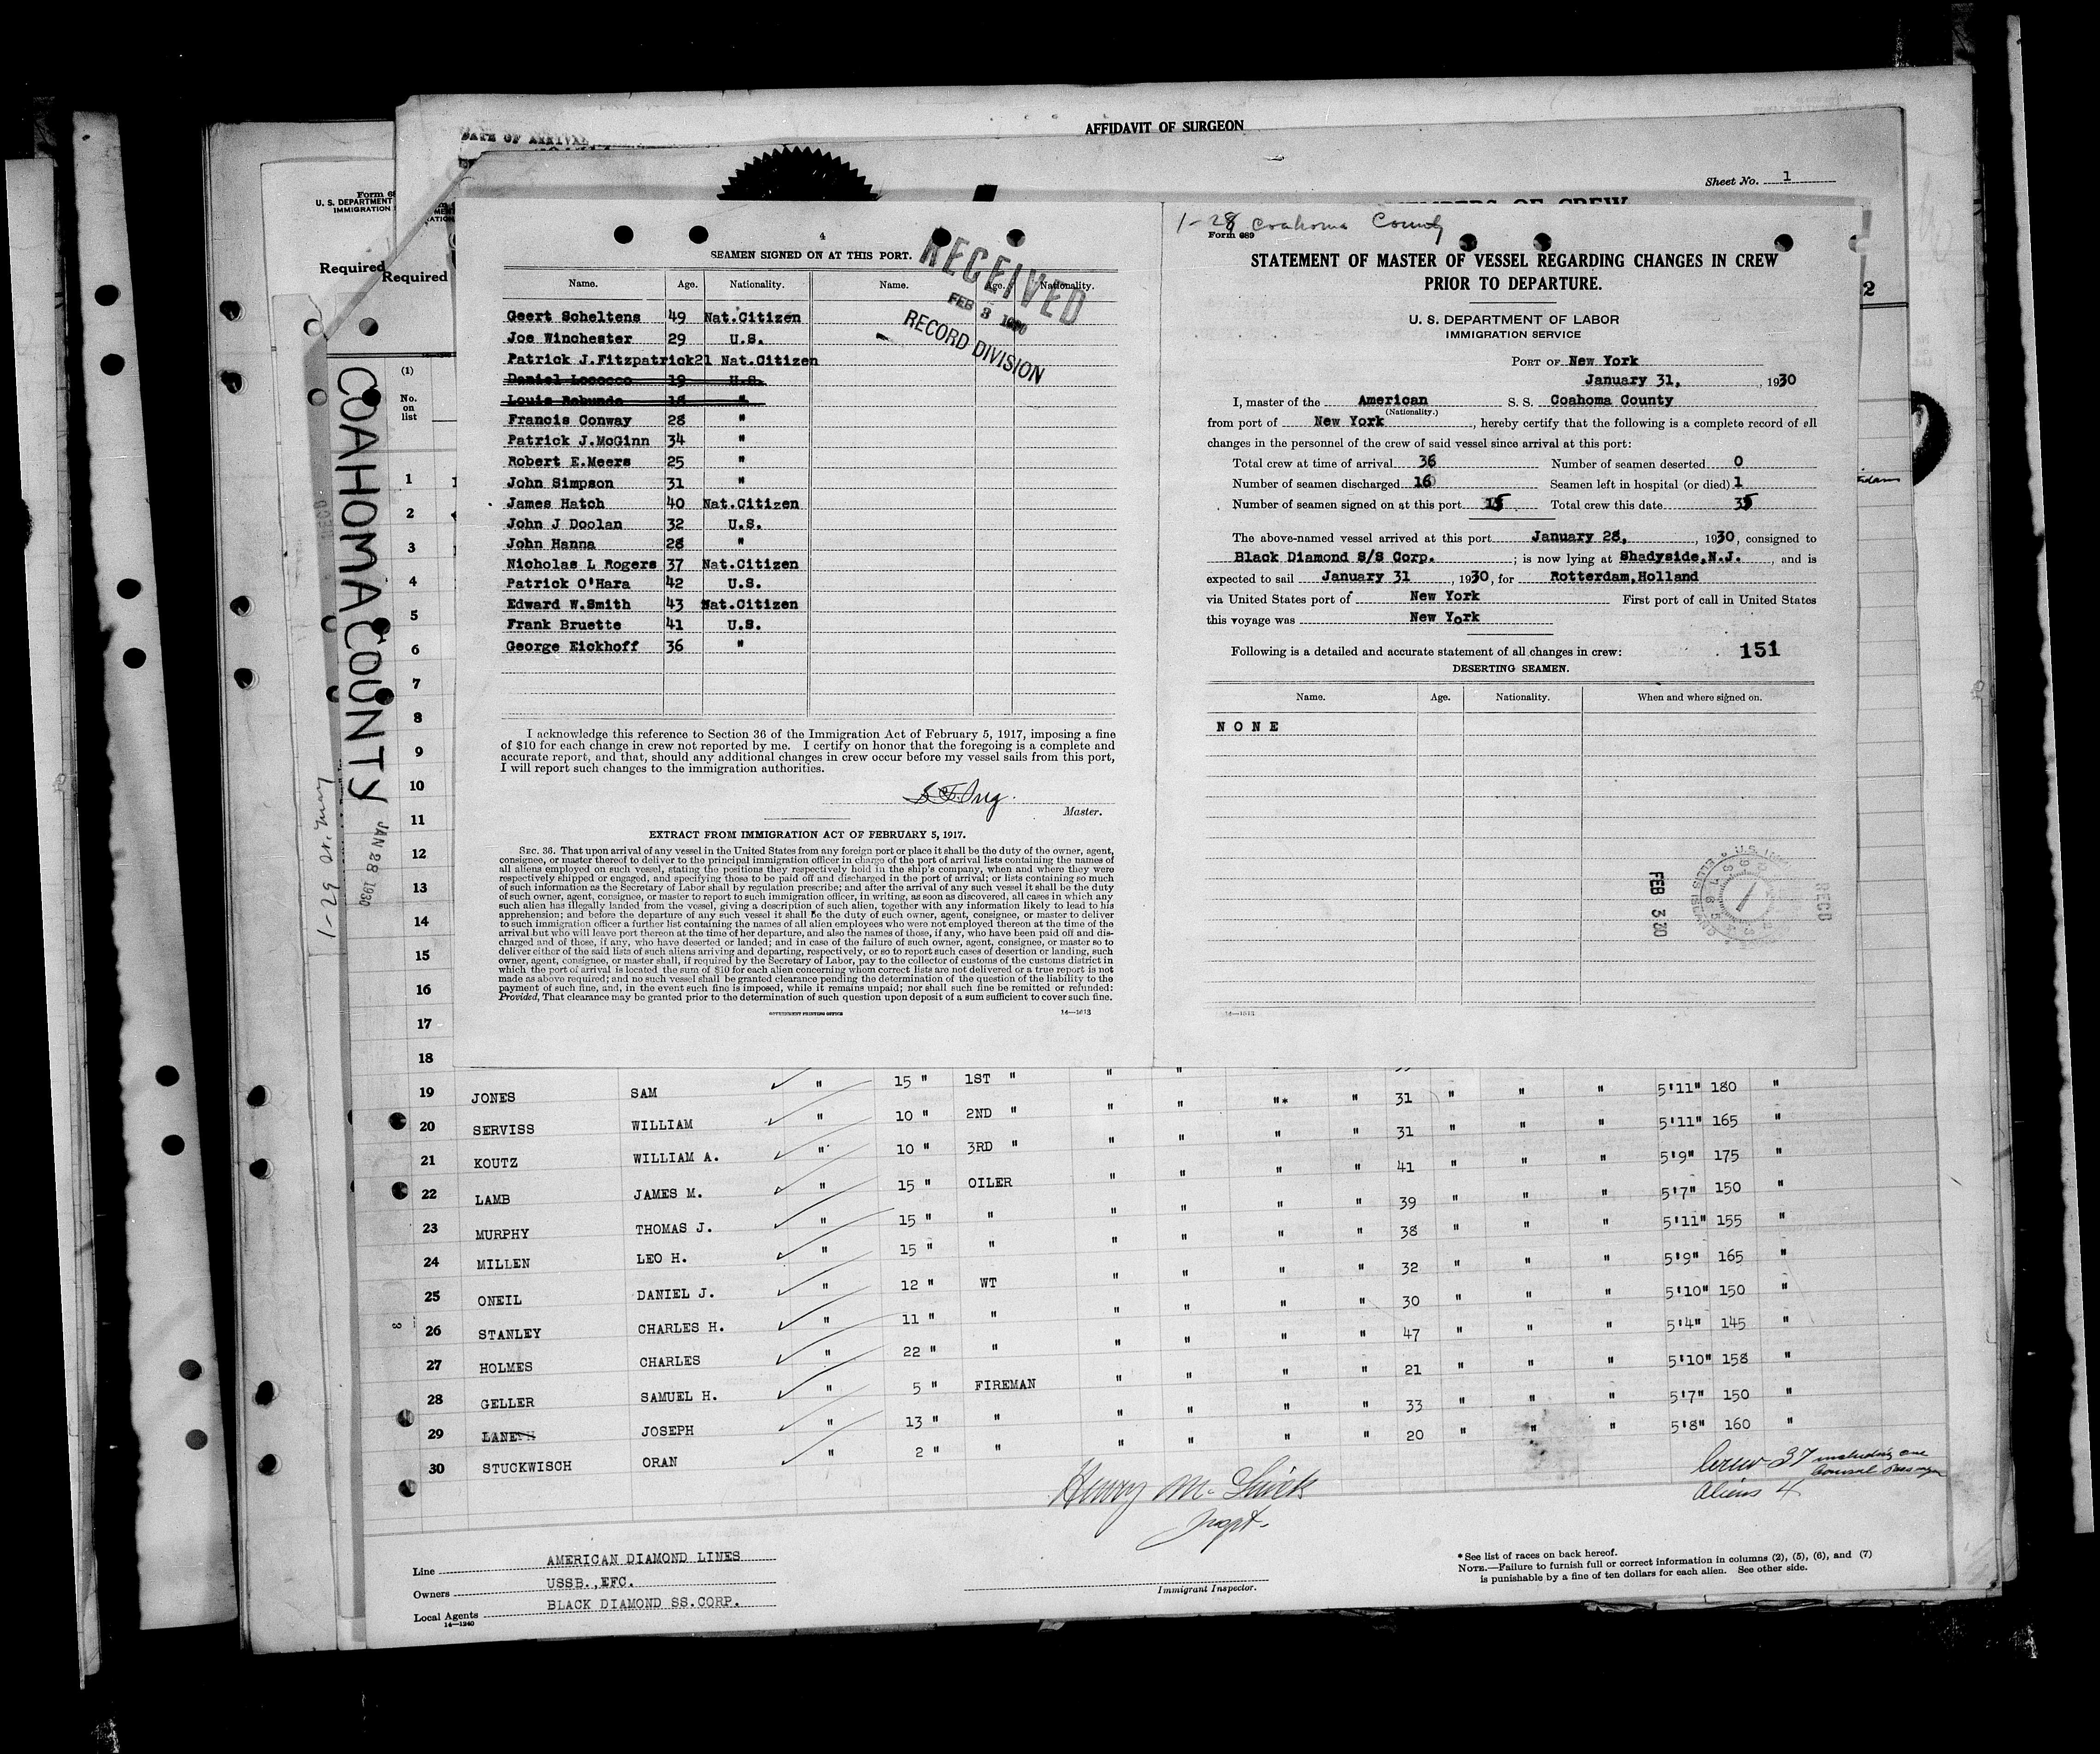 AFFIDAVIT OF SURGEON
DATE OF ARRIVAL
Sheet No. 1
MEMBERS OF CREW
Form 68
U. S. DEPARTMENT
IMMIGRATION
Required
Required
2
(1)
No.
on
list
COAHOMA COUNTY
JAN 28 1930
4
SEAMEN SIGNED ON AT THIS PORT.
RECEIVED
FEB 3 1930
RECORD DIVISION
Name. Age. Nationality. Name. Age. Nationality.
Geert Scheltens 49 Nat.Citizen
Joe Winchester 29 U.S.
Patrick J.Fitzpatrick21 Nat.Citizen
Daniel Lococco 19 U.S.
Louis Rebunde 18 "
Francis Conway 28 "
Patrick J.McGinn 34 "
Robert E.Meers 25 "
John Simpson 31 "
James Hatch 40 Nat.Citizen
John J Doolan 32 U.S.
John Hanna 28 "
Nicholas L Rogers 37 Nat.Citizen
Patrick O'Hara 42 U.S.
Edward W.Smith 43 Nat.Citizen
Frank Bruette 41 U.S.
George Eickhoff 36 "
I acknowledge this reference to Section 36 of the Immigration Act of February 5, 1917, imposing a fine
of $10 for each change in crew not reported by me. I certify on honor that the foregoing is a complete and
accurate report, and that, should any additional changes in crew occur before my vessel sails from this port,
I will report such changes to the immigration authorities.
Master.
EXTRACT FROM IMMIGRATION ACT OF FEBRUARY 5, 1917.
SEC. 36. That upon arrival of any vessel in the United States from any foreign port or place it shall be the duty of the owner, agent,
consignee, or master thereof to deliver to the principal immigration officer in charge of the port of arrival lists containing the names of
all aliens employed on such vessel, stating the positions they respectively hold in the ship's company, when and where they were
respectively shipped or engaged, and specifying those to be paid off and discharged in the port of arrival; or lists containing so much
of such information as the Secretary of Labor shall by regulation prescribe; and after the arrival of any such vessel it shall be the duty
of such owner, agent, consignee, or master to report to such immigration officer, in writing, as soon as discovered, all cases in which any
such alien has illegally landed from the vessel, giving a description of such alien, together with any information likely to lead to his
apprehension; and before the departure of any such vessel it shall be the duty of such owner, agent, consignee, or master to deliver
to such immigration officer a further list containing the names of all alien employees who were not employed thereon at the time of the
arrival but who will leave port thereon at the time of her departure, and also the names of those, if any, who have been paid off and dis-
charged and of those, if any, who have deserted or landed; and in case of the failure of such owner, agent, consignee, or master so to
deliver either of the said lists of such aliens arriving and departing, respectively, or so to report such cases of desertion or landing, such
owner, agent, consignee, or master shall, if required by the Secretary of Labor, pay to the collector of customs of the customs district in
which the port of arrival is located the sum of $10 for each alien concerning whom correct lists are not delivered or a true report is not
made as above required; and no such vessel shall be granted clearance pending the determination of the question of the liability to the
payment of such fine, and, in the event such fine is imposed, while it remains unpaid; nor shall such fine be remitted or refunded:
Provided, That clearance may be granted prior to the determination of such question upon deposit of a sum sufficient to cover such fine.
GOVERNMENT PRINTING OFFICE 14—1613
1-28 Coahoma County
Form 689
STATEMENT OF MASTER OF VESSEL REGARDING CHANGES IN CREW
PRIOR TO DEPARTURE.
U. S. DEPARTMENT OF LABOR
IMMIGRATION SERVICE
PORT OF New York
January 31, , 1930
I, master of the American S. S. Coahoma County
(Nationality.)
from port of New York , hereby certify that the following is a complete record of all
changes in the personnel of the crew of said vessel since arrival at this port:
Total crew at time of arrival 36 Number of seamen deserted 0
Number of seamen discharged 16 Seamen left in hospital (or died) 1
Number of seamen signed on at this port 15 Total crew this date 35
The above-named vessel arrived at this port January 28, , 1930, consigned to
Black Diamond S/S Corp. ; is now lying at Shadyside,N.J. , and is
expected to sail January 31 , 1930, for Rotterdam,Holland
via United States port of New York First port of call in United States
this voyage was New York
Following is a detailed and accurate statement of all changes in crew: 151
DESERTING SEAMEN.
Name. Age. Nationality. When and where signed on.
NONE
FEB 3 30
REC'D
14—1613
1
2
3
4
5
6
7
8
9
10
11
12
13
14
15
16
17
18
19 JONES SAM " 15 " 1ST " " " "* " 31 " " " 5'11" 180 "
20 SERVISS WILLIAM " 10 " 2ND " " " " " 31 " " " 5'11" 165 "
21 KOUTZ WILLIAM A. " 10 " 3RD " " " " " 41 " " " 5'9" 175 "
22 LAMB JAMES M. " 15 " OILER " " " " 39 " " " 5'7" 150 "
23 MURPHY THOMAS J. " 15 " " " " " " 38 " " " 5'11" 155 "
24 MILLEN LEO H. " 15 " " " " " " 32 " " " 5'9" 165 "
25 ONEIL DANIEL J. " 12 " WT " " " " 30 " " " 5'10" 150 "
26 STANLEY CHARLES H. " 11 " " " " " " 47 " " " 5'4" 145 "
27 HOLMES CHARLES " 22 " " " " " " 21 " " " 5'10" 158 "
28 GELLER SAMUEL H. " 5 " FIREMAN " " " " 33 " " " 5'7" 150 "
29 LANE JOSEPH " 13 " " " " " " 20 " " " 5'8" 160 "
30 STUCKWISCH ORAN " 2 " "
Crew 37 including one
Consul Passenger
Aliens 4
Inspt.
Line AMERICAN DIAMOND LINES
Owners USSB.,EFC.
Local Agents BLACK DIAMOND SS.CORP.
14—1240
Immigrant Inspector.
* See list of races on back hereof.
NOTE.—Failure to furnish full or correct information in columns (2), (5), (6), and (7)
is punishable by a fine of ten dollars for each alien. See other side.